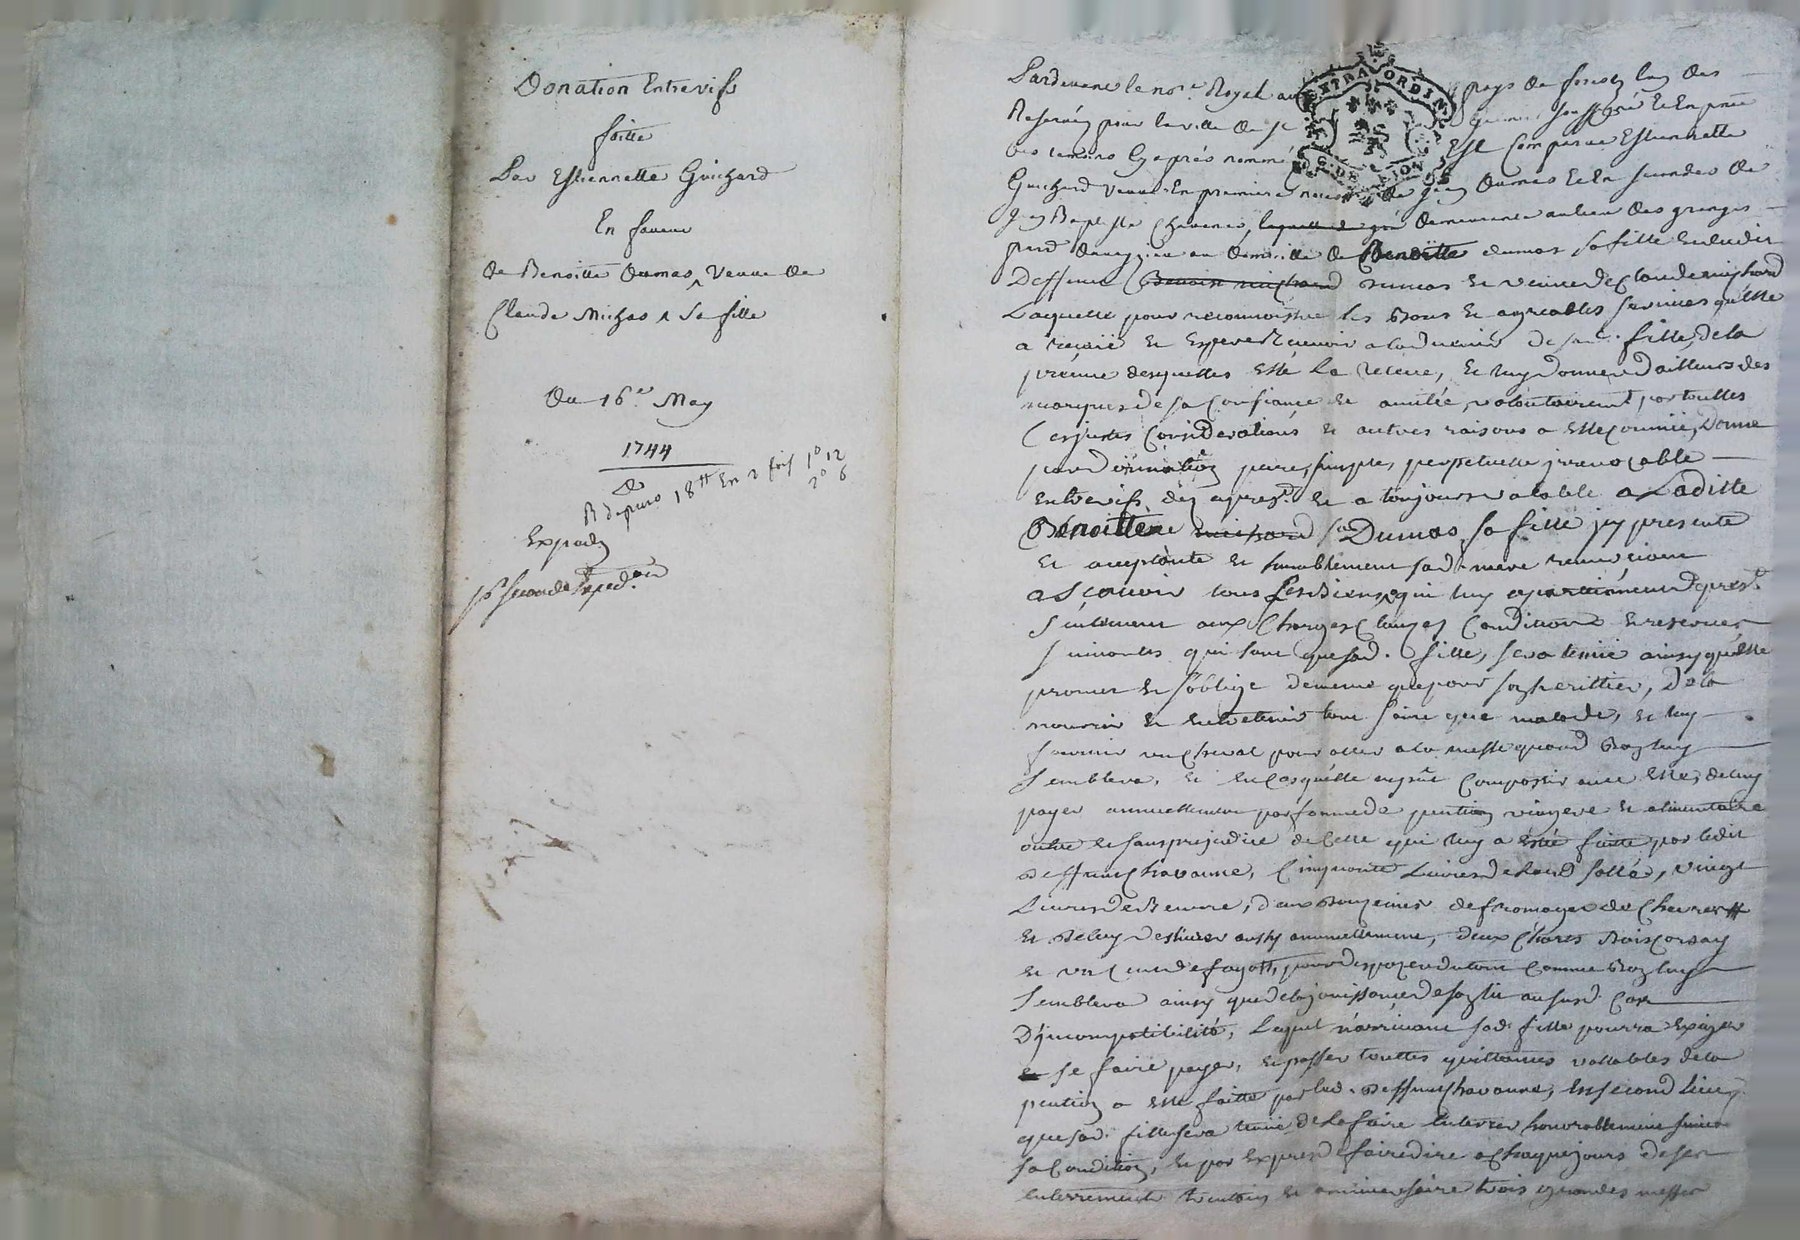 Donation Entrevifs
faitte
Par Estiennette Guichard
En faveur
de Benoitte Dumas, Veuve de
Claude Michas sa fille
Du 16e May
1744
R depuro 18tt En 2 fois 1° 12
2° 6
Exped
Seconde Exped.on
EXTRAORDIN
G. DE LION
Pardevant le no.re Royal au pays de forest, lun des
Reservés pour la ville de St soussigné et En p̄nce
des temoins Cyaprés nommé Est Comparue Estiennette
Guichard veuve En premiere de Jean Dumas et En secondes de
Jean Baptiste Chavanne, laquelle de gré demeurante au lieu des granges
au domicille de Benoitte dumas sa fille et dudit
Deffunt Benoist michard dumas et veuve de Claude michard
Laquelle pour reconnoistre les Bons et agreables services quelle
a reçue et Espere Recevoir a la ductrice de sad. fille, de la
preuve desquelles Elle La releve, et luy donner d'ailleurs des
marques de sa Confiance et amitiée, volontairement, par touttes
Ces justes Considerations et autres raisons a Elle Connue, Donne
par donnation pure, simple, perpetuelle irrevocable
Entrevifs, dez apres.t et a toujours valable a Laditte
Benoitte michard Dumas, sa fille jcy presente
et acceptante et humblement sad. mere remerciant
a Sçavoir tous ses Biens qui luy apartiennent de pres.t
seulement aux Charges Clauses Conditions et reserves
suivantes qui sont que sad. fille, sera tenüe ainsy qu'elle
promet et s'oblige de meme que pour son heritier, de la
nourrir et entretenir tant saine que malade, et luy
fournir un Cheval pour aller a la messe quand Bon luy
semblera, et en Cas quelle ne put Compatir avec Elle, de luy
payer annuellement par forme de pention viagere et alimentaire
outre et sans prejudice de Celle qui luy a estée faitte par ledit
deffunt Chavanne, Cinquante Livres de Lard sallé, vingt
Livres de Beurre, deux douzeines de fromages de Chevres
et de luy deslivrer aussy annuellement, deux Chars Bois
et un Cent de fagott, pour disposer du tout Comme Bon luy
semblera ainsy que de la jouissance de son lit au susd. Cas
D'jncompatibilité, Lequel n'arrivant sad. fille pourra Exiger
et se faire payer, et passer touttes quittances vallables de la
pention a Elle faitte par led. deffunt Chavanne, En second lieu
que sad. fille sera tenüe de La faire Enterrer honnorablement suivant
sa Condition, et par Exprés de faire dire a Chaque jours de son
Enterrement, trentain et anniversaire trois grandes messes